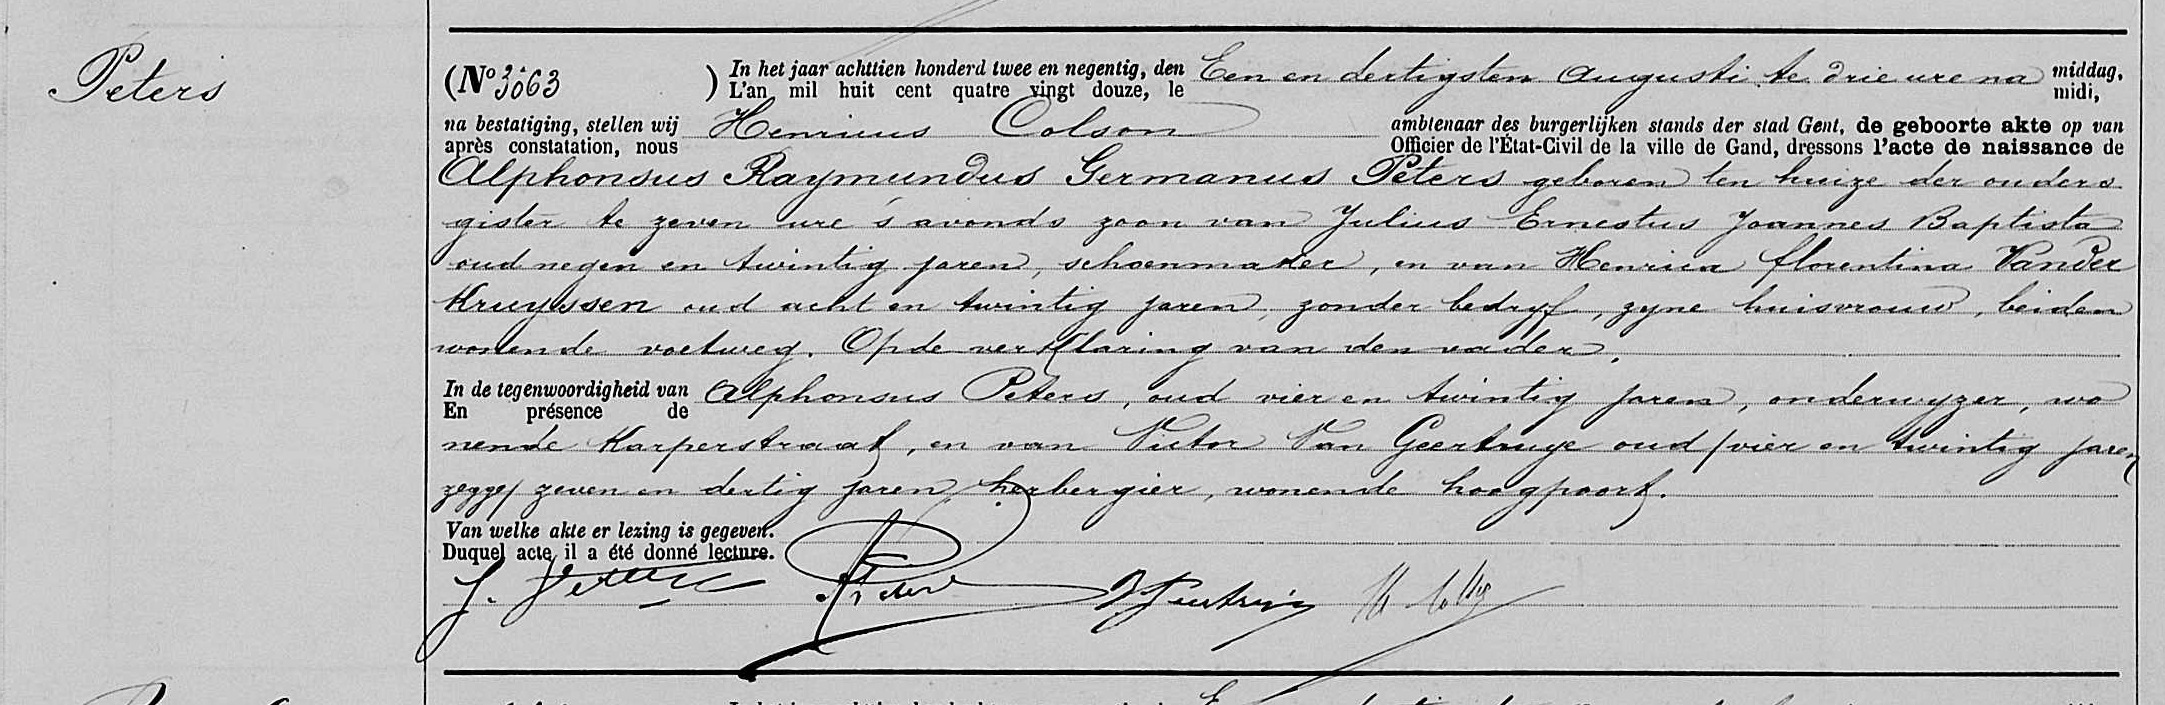 Peters
(No 3063 ) In het jaar achttien honderd twee en negentig, den Een en dertigsten Augusti te drie ure na middag,
L'an mil huit cent quatre vingt douze, le midi,
na bestatiging, stellen wij Henricus Colson ambtenaar des burgerlijken stands der stad Gent, de geboorte akte op van
après constatation, nous Officier de l'État-Civil de la ville de Gand, dressons l'acte de naissance de
Alphonsus Raymundus Germanus Peters geboren ten huize der ouders
gister te zeven ure 's avonds zoon van Julius Ernestus Joannes Baptista
oud negen en twintig jaren, schoenmaker, en van Henrica florentina Vander
Kruyssen oud acht en twintig jaren, zonder bedryf, zyne huisvrouw, beiden
wonende voetweg. Op de verklaring van den vader.
In de tegenwoordigheid van Alphonsus Peters, oud vier en twintig jaren, onderwyzer, wo
En présence de
nende Karperstraat, en van Victor Van Geertruye oud /vier en twintig jaren
zegge/ zeven en dertig jaren, herbergier, wonende hoogpoort.
Van welke akte er lezing is gegeven.
Duquel acte il a été donné lecture.
J. Peters